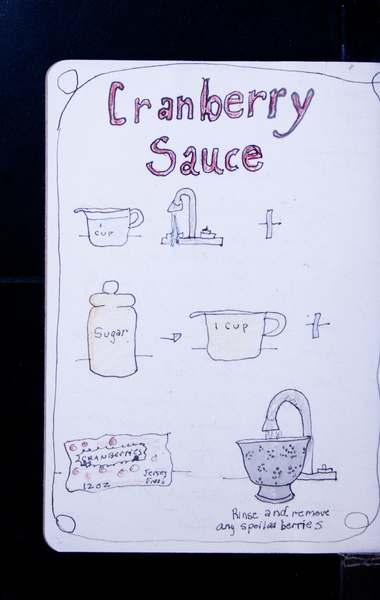 Cranberry
Sauce
1
CUP
+
Sugar
1 CUP
+
CRANBERRIES
Jersey
12 OZ
Rinse and remove
any spoiled berries